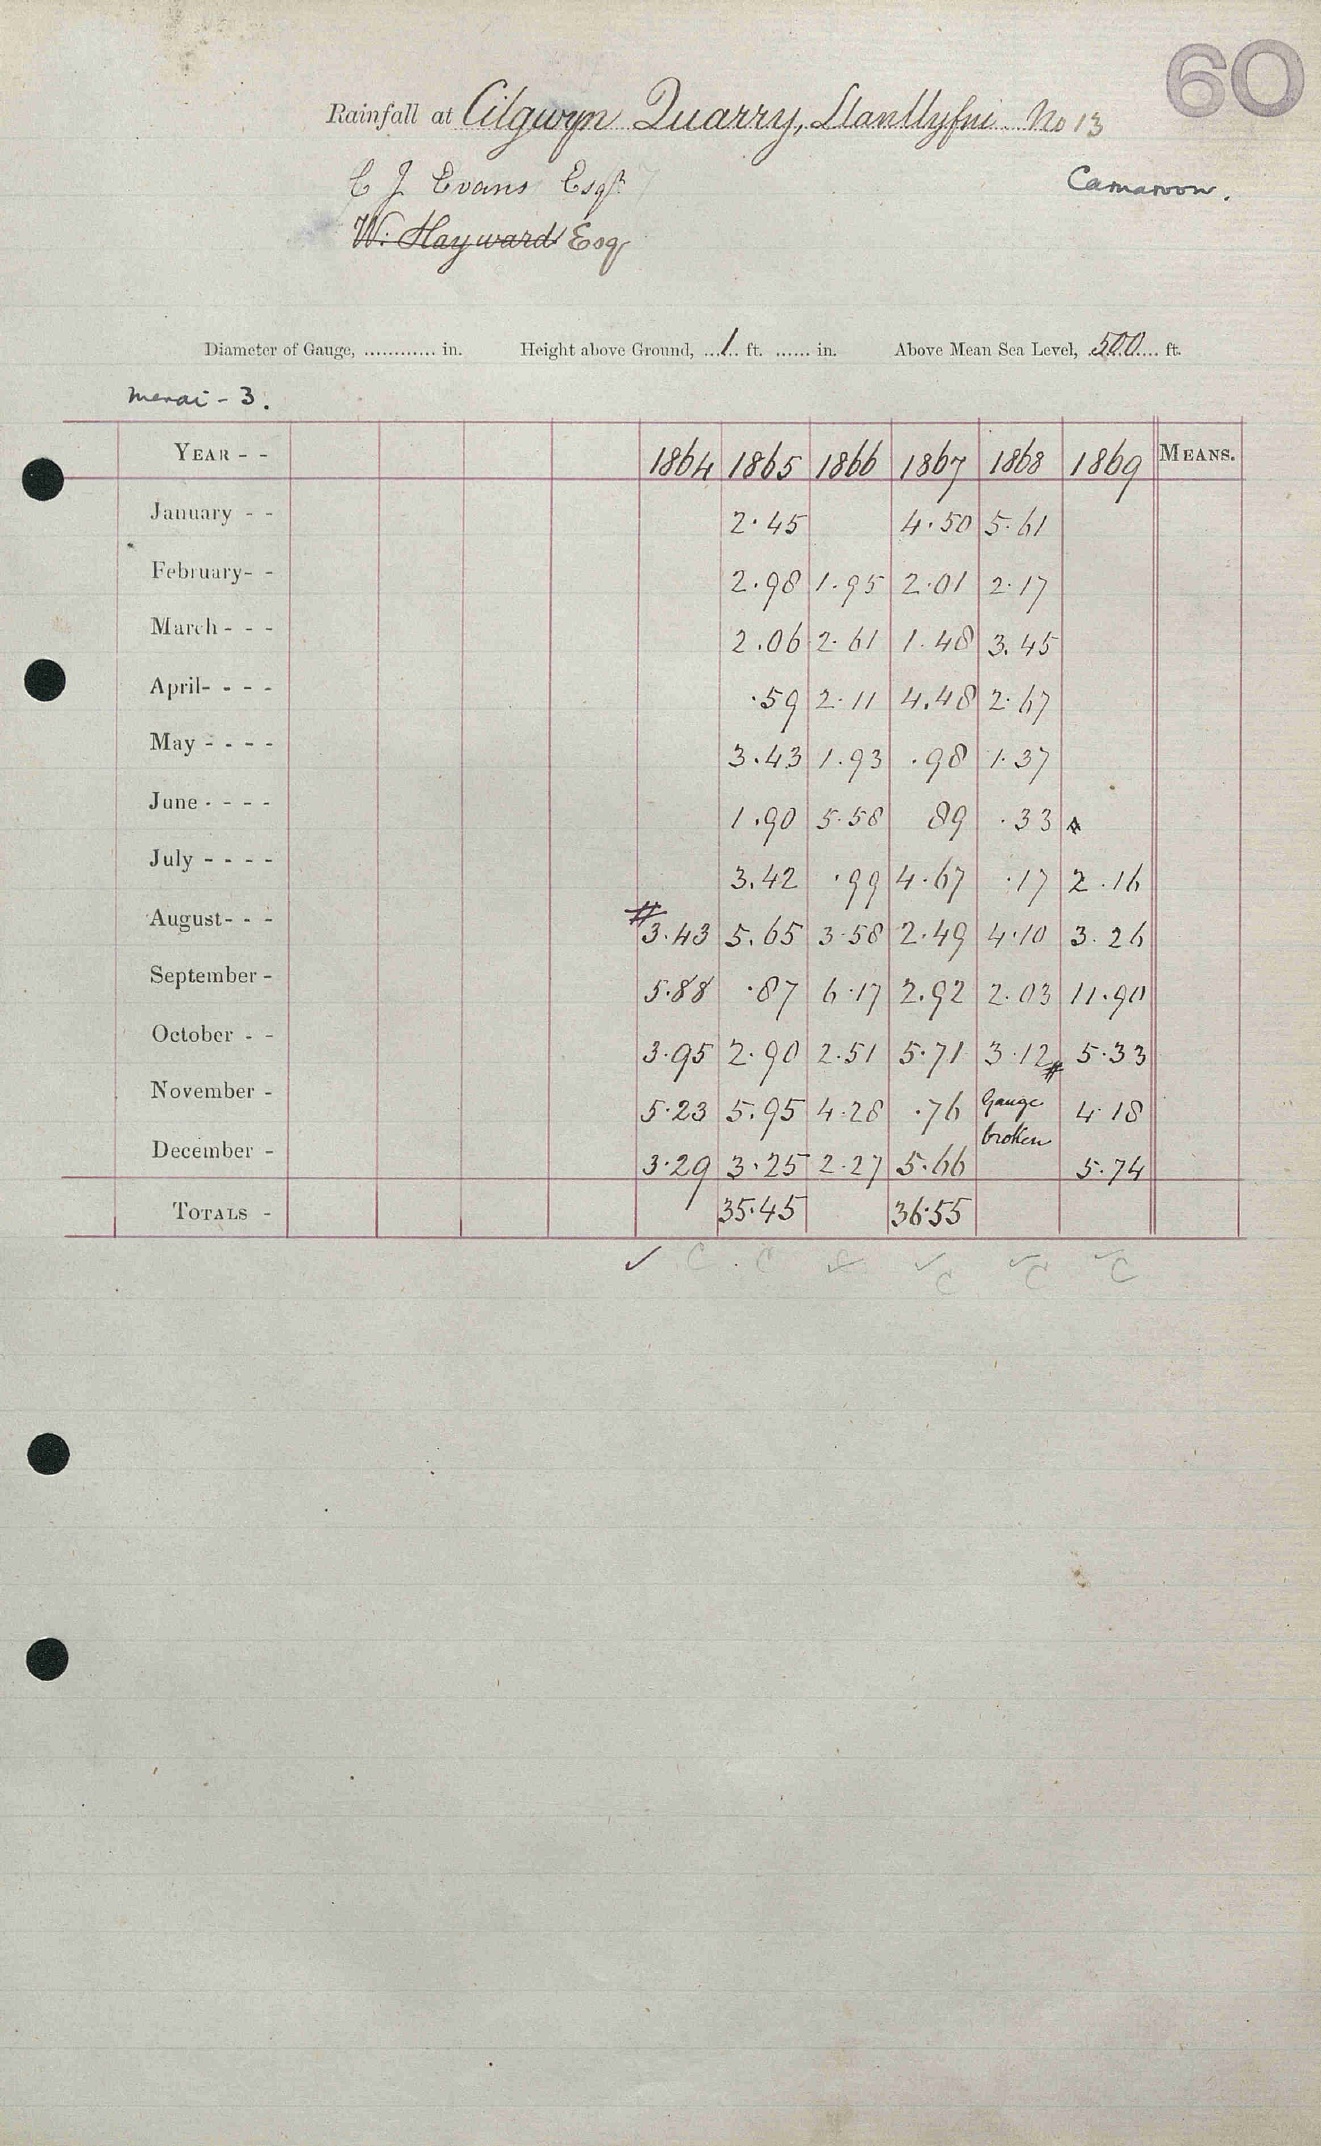 60
Rainfall at Cilgwyn Quarry, Llanllyfni. No 13
C J Evans Esqr
Carnarvon.
W. Hayward Esq
Diameter of Gauge, ............ in. Height above Ground, ...1... ft. ...... in. Above Mean Sea Level, .500.... ft.
Menai - 3.
YEAR - - 1864 1865 1866 1867 1868 1869 MEANS.
January - - 2.45 4.50 5.61
February- - 2.98 1.95 2.01 2.17
March - - - 2.06 2.61 1.48 3.45
April- - - - .59 2.11 4.48 2.67
May - - - - 3.43 1.93 .98 1.37
June - - - - 1.90 5.58 89 .33
July - - - - 3.42 .99 4.67 .17 2.16
August- - - #3.43 5.65 3.58 2.49 4.10 3.26
September - 5.88 .87 6.17 2.92 2.03 11.90
October - - 3.95 2.90 2.51 5.71 3.12# 5.33
November - 5.23 5.95 4.28 .76 Gauge 4.18
broken
December - 3.29 3.25 2.27 5.66 5.74
TOTALS - 35.45 36.55
✓ C . C ✓ ✓ C ✓ C ✓ C